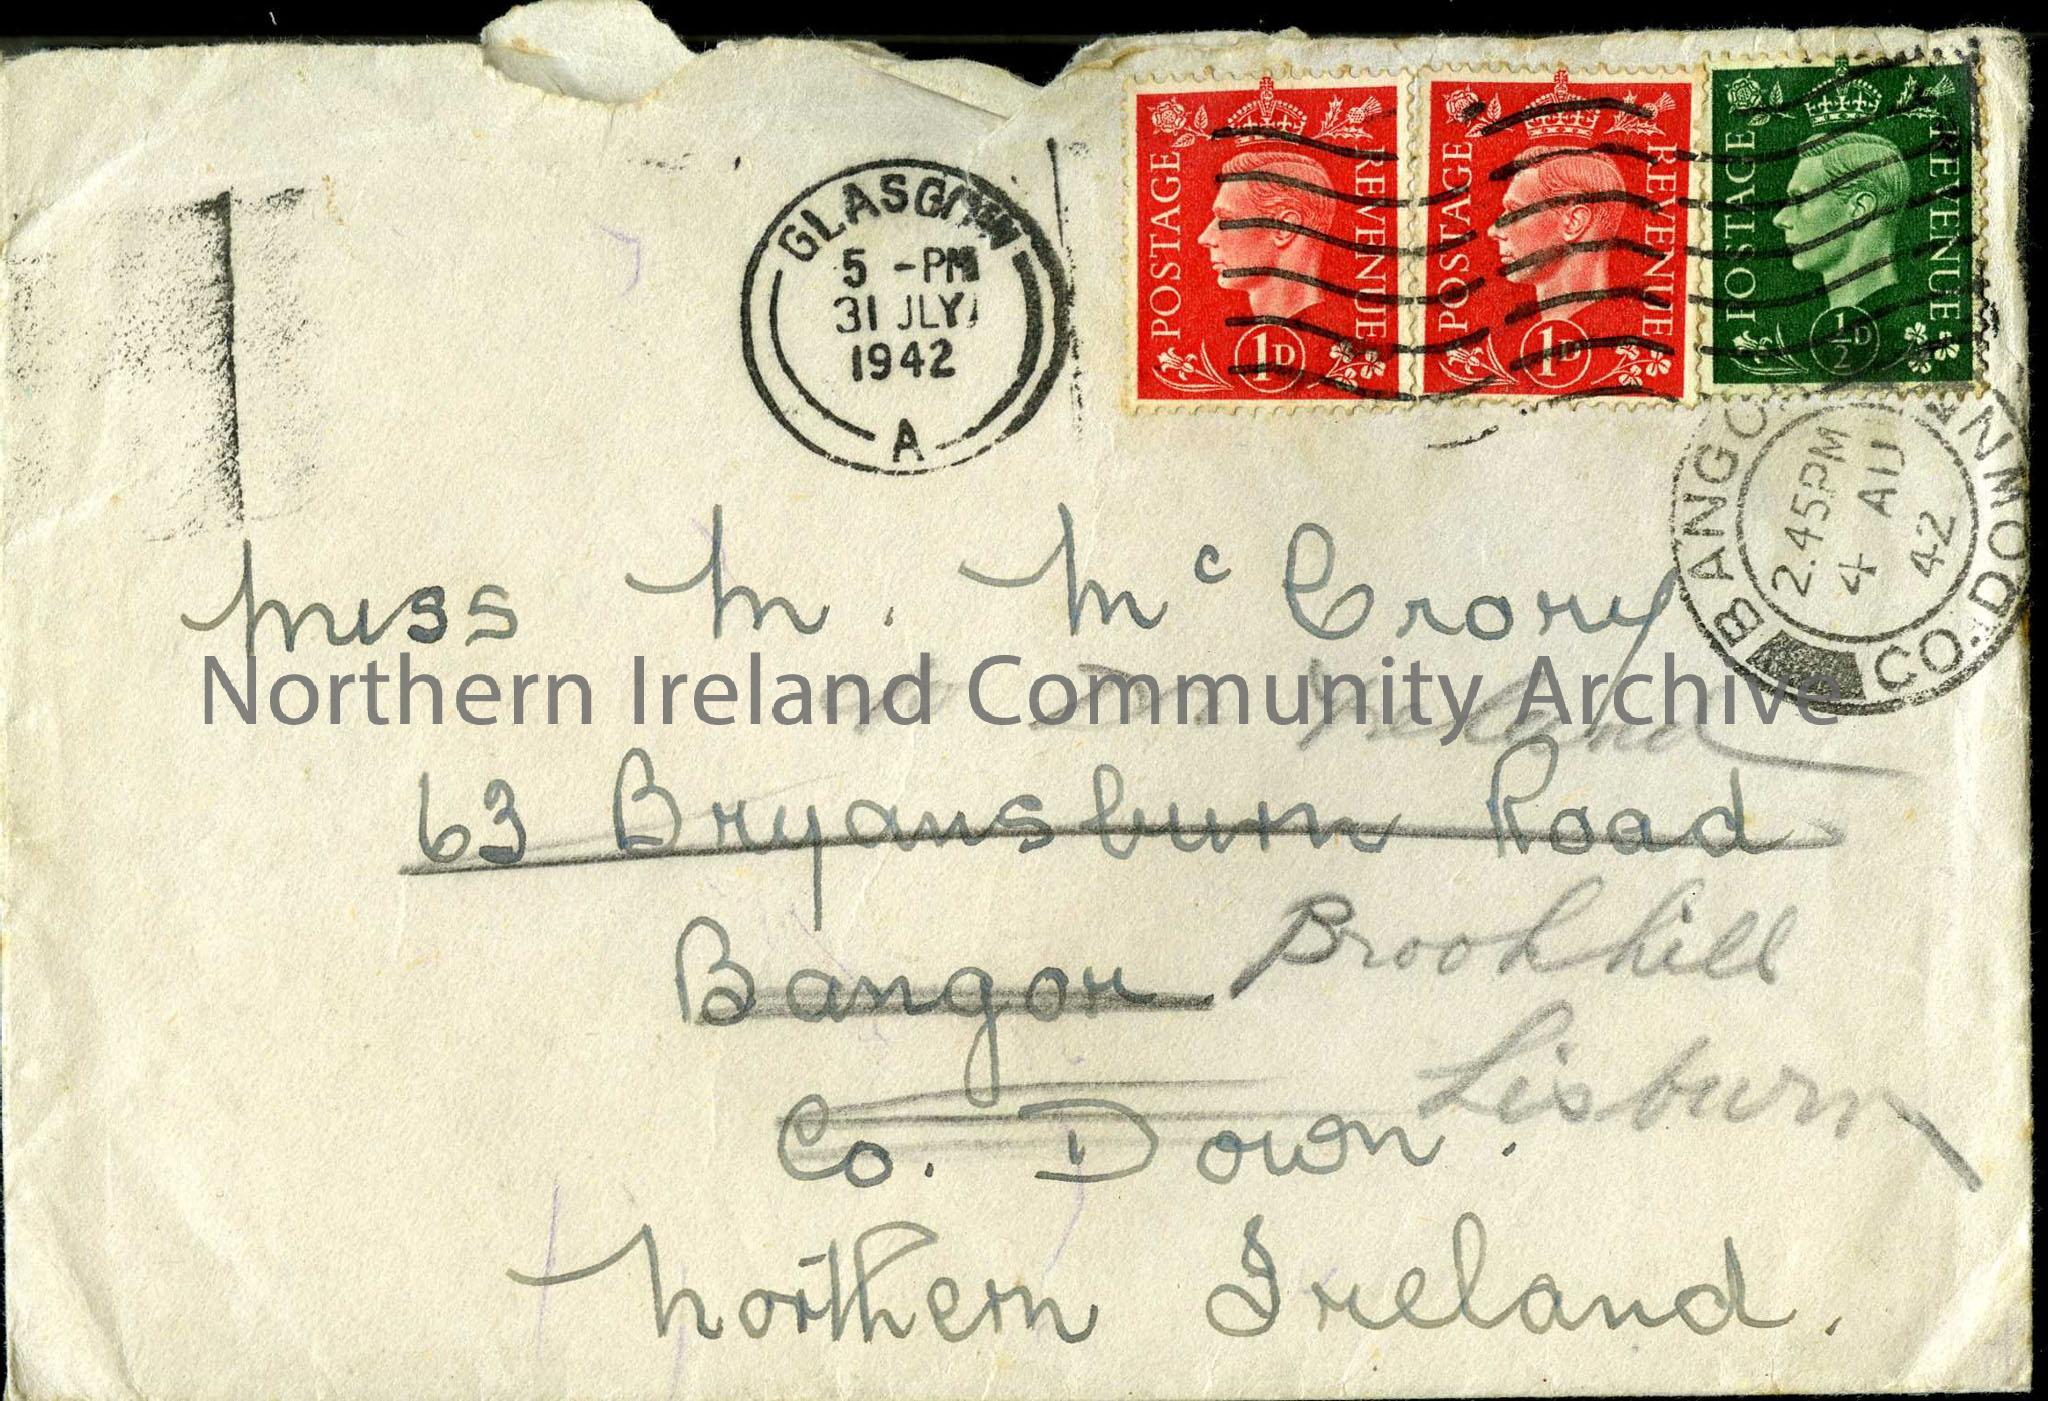 POSTAGE REVENUE 1D
POSTAGE REVENUE 1D
POSTAGE REVENUE ½D
GLASGOW
5 - PM
31 JLY
1942
A
BANGOR
CO. DOWN
2.45PM
4 AU
42
Miss M. McCrory
Northern Ireland Community Archive
63 Bryansburn Road
Brookhill
Bangor
Lisburn
Co. Down.
Northern Ireland.